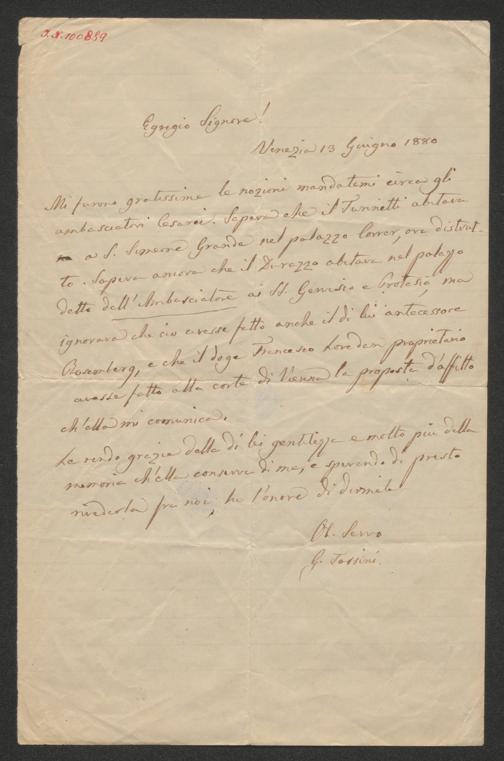 J. N. 100859
Egregio Signore!
Venezia 13 Giugno 1880
Mi furono gratissime le nozioni mandatemi circa gli
ambasciatori Cesarei. Sapeva che il abitava
a S. Simeone Grande nel palazzo Correr, ora distrut-
to. Sapeva ancora che il Durazzo abitava nel palazzo
detto dell'Ambasciatore ai SS. Gervasio e Protasio, ma
ignorava che ciò avesse fatto anche il di lui antecessore
Rosemberg, e che il doge Francesco Loredan proprietario
avesse fatto alla corte di Vienna la proposta d'affitto
ch'ella mi comunica.
Le rendo grazie della di lei gentilezza e molto più della
memoria ch'ella conserva di me, e sperando di presto
rivederla fra noi, ho l'onore di dirmele
Ob. Servo
G. Tassini.